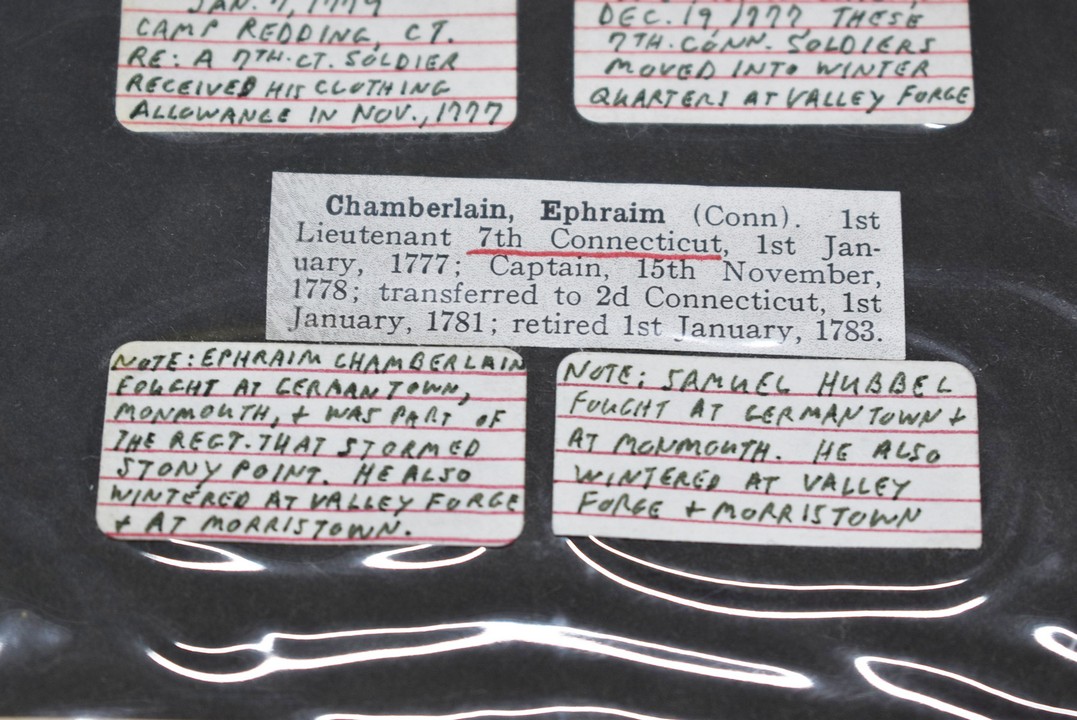 JAN. 7, 1779
CAMP REDDING, CT.
RE: A 7TH. CT. SOLDIER
RECEIVED HIS CLOTHING
ALLOWANCE IN NOV., 1777
DEC. 19 1777 THESE
7TH. CONN. SOLDIERS
MOVED INTO WINTER
QUARTERS AT VALLEY FORGE
Chamberlain, Ephraim (Conn). 1st
Lieutenant 7th Connecticut, 1st Jan-
uary, 1777; Captain, 15th November,
1778; transferred to 2d Connecticut, 1st
January, 1781; retired 1st January, 1783.
NOTE: EPHRAIM CHAMBERLAIN
FOUGHT AT GERMANTOWN,
MONMOUTH, + WAS PART OF
THE REGT. THAT STORMED
STONY POINT. HE ALSO
WINTERED AT VALLEY FORGE
+ AT MORRISTOWN.
NOTE: SAMUEL HUBBEL
FOUGHT AT GERMANTOWN +
AT MONMOUTH. HE ALSO
WINTERED AT VALLEY
FORGE + MORRISTOWN